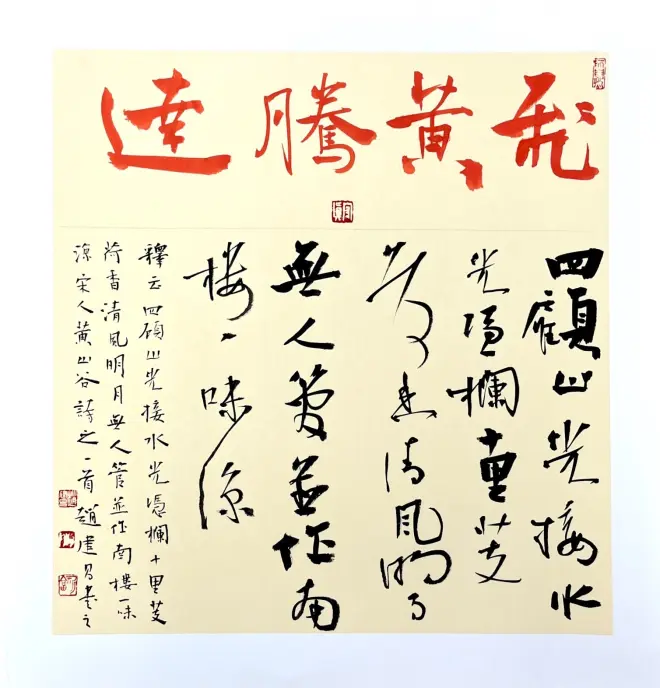 飛黄騰達
四顧山光接水
光憑欄十里芰
荷香清風明月
無人管並作南
樓一味涼
釋云四顧山光接水光憑欄十里芰
荷香清風明月無人管並作南樓一味
涼宋人黄山谷詩之一首趙書之